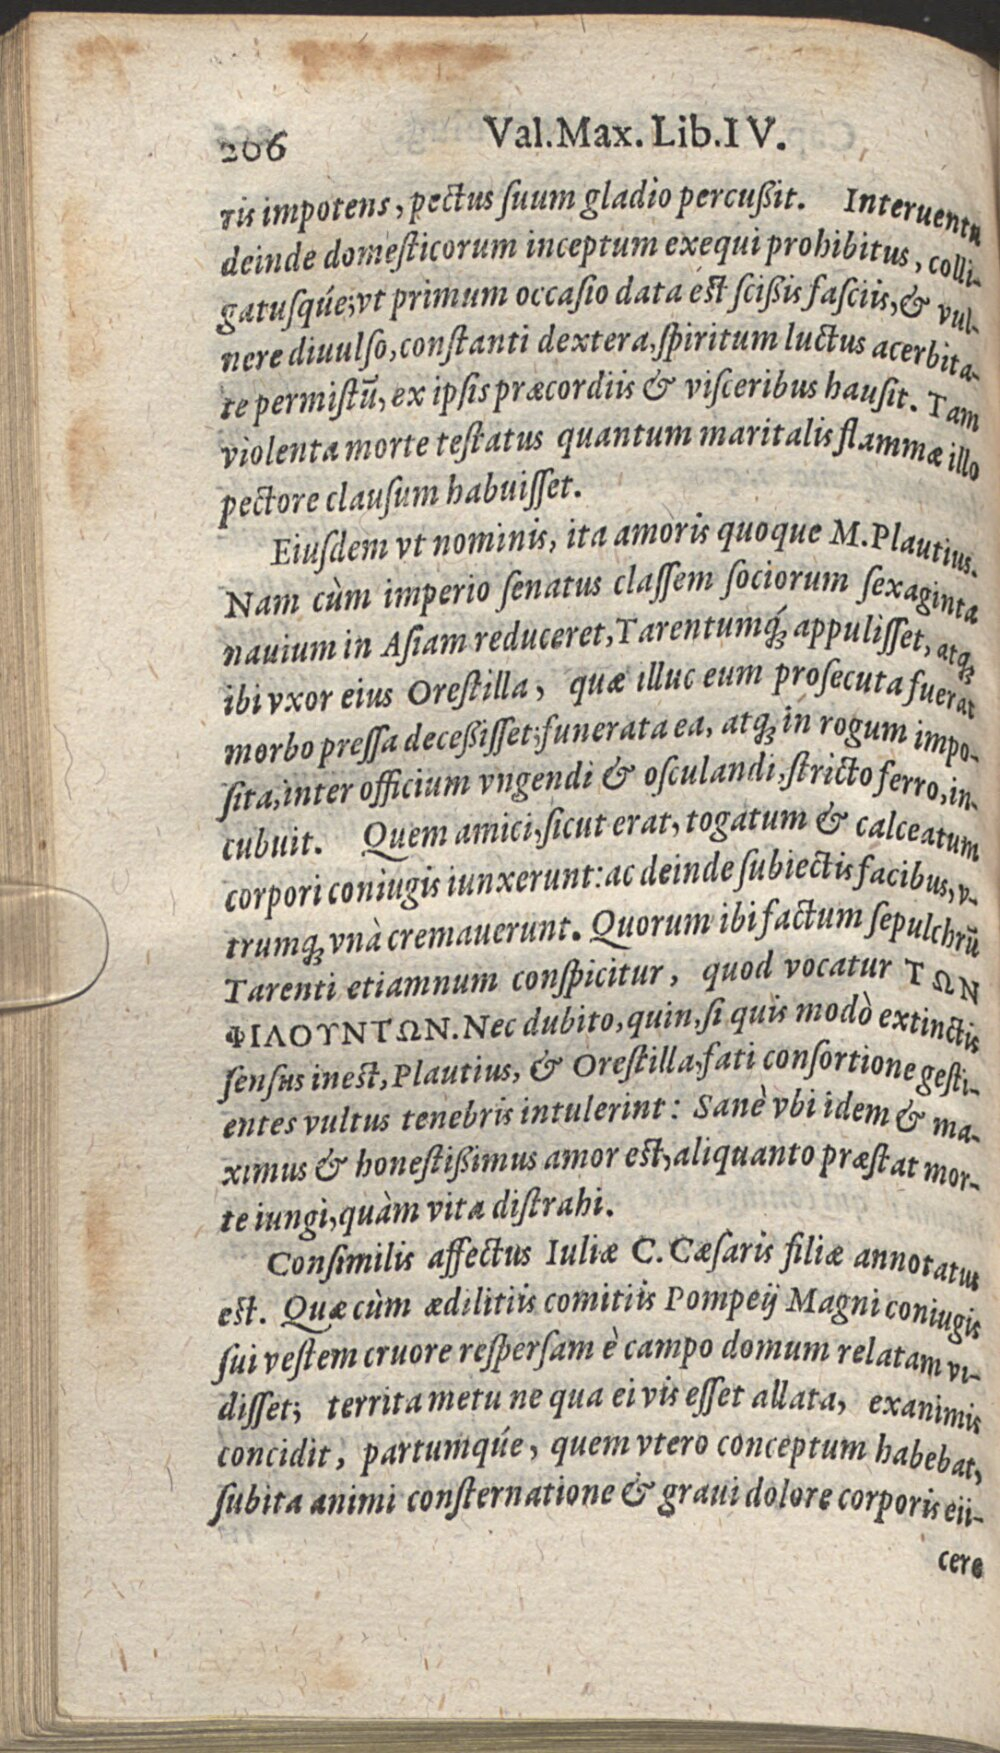 206 Val.Max. Lib.IV.
ris impotens, pectus ſuum gladio percußit. Interuentu
deinde domeſticorum inceptum exequi prohibitus, colli-
gatuſqúe; vt primum occaſio data eſt ſcißis faſciis, & vul-
nere diuulſo, conſtanti dextera, ſpiritum luctus acerbita-
te permiſtū, ex ipſis præcordiis & viſceribus hauſit. Tam
violenta morte teſtatus quantum maritalis flammæ illo
pectore clauſum habuiſſet.
Eiuſdem vt nominis, ita amoris quoque M. Plautius.
Nam cùm imperio ſenatus claſſem ſociorum ſexaginta
nauium in Aſiam reduceret, Tarentumq́; appuliſſet, atq;
ibi vxor eius Oreſtilla, quæ illuc eum proſecuta fuerat
morbo preſſa deceßiſſet; funerata ea, atq; in rogum impo-
ſita, inter officium vngendi & oſculandi, ſtricto ferro, in-
cubuit. Quem amici, ſicut erat, togatum & calceatum
corpori coniugis iunxerunt: ac deinde ſubiectis facibus, v-
trumq; vnà cremauerunt. Quorum ibi factum ſepulchrū
Tarenti etiamnum conſpicitur, quod vocatur ΤΩΝ
ΦΙΛΟΥΝΤΩΝ. Nec dubito, quin, ſi quis modò extinctis
ſenſus ineſt, Plautius, & Oreſtilla, fati conſortione geſti-
entes vultus tenebris intulerint: Sanè vbi idem & ma-
ximus & honeſtißimus amor eſt, aliquanto præſtat mor-
te iungi, quàm vita diſtrahi.
Conſimilis affectus Iuliæ C. Cæſaris filiæ annotatus
eſt. Quæ cùm ædilitiis comitiis Pompeij Magni coniugis
ſui veſtem cruore reſperſam è campo domum relatam vi-
diſſet; territa metu ne qua ei vis eſſet allata, exanimis
concidit, partumqúe, quem vtero conceptum habebat,
ſubita animi conſternatione & graui dolore corporis eii-
cere